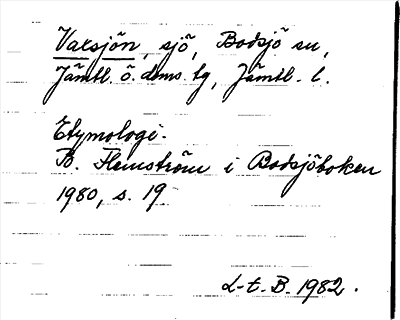 Vaxsjön, sjö, Bodsjö sn,
Jämtl. ö. doms. tg, Jämtl. l.
Etymologi.
B. Flemström i Bodsjöboken
1980, s. 19
L-t. B. 1982.